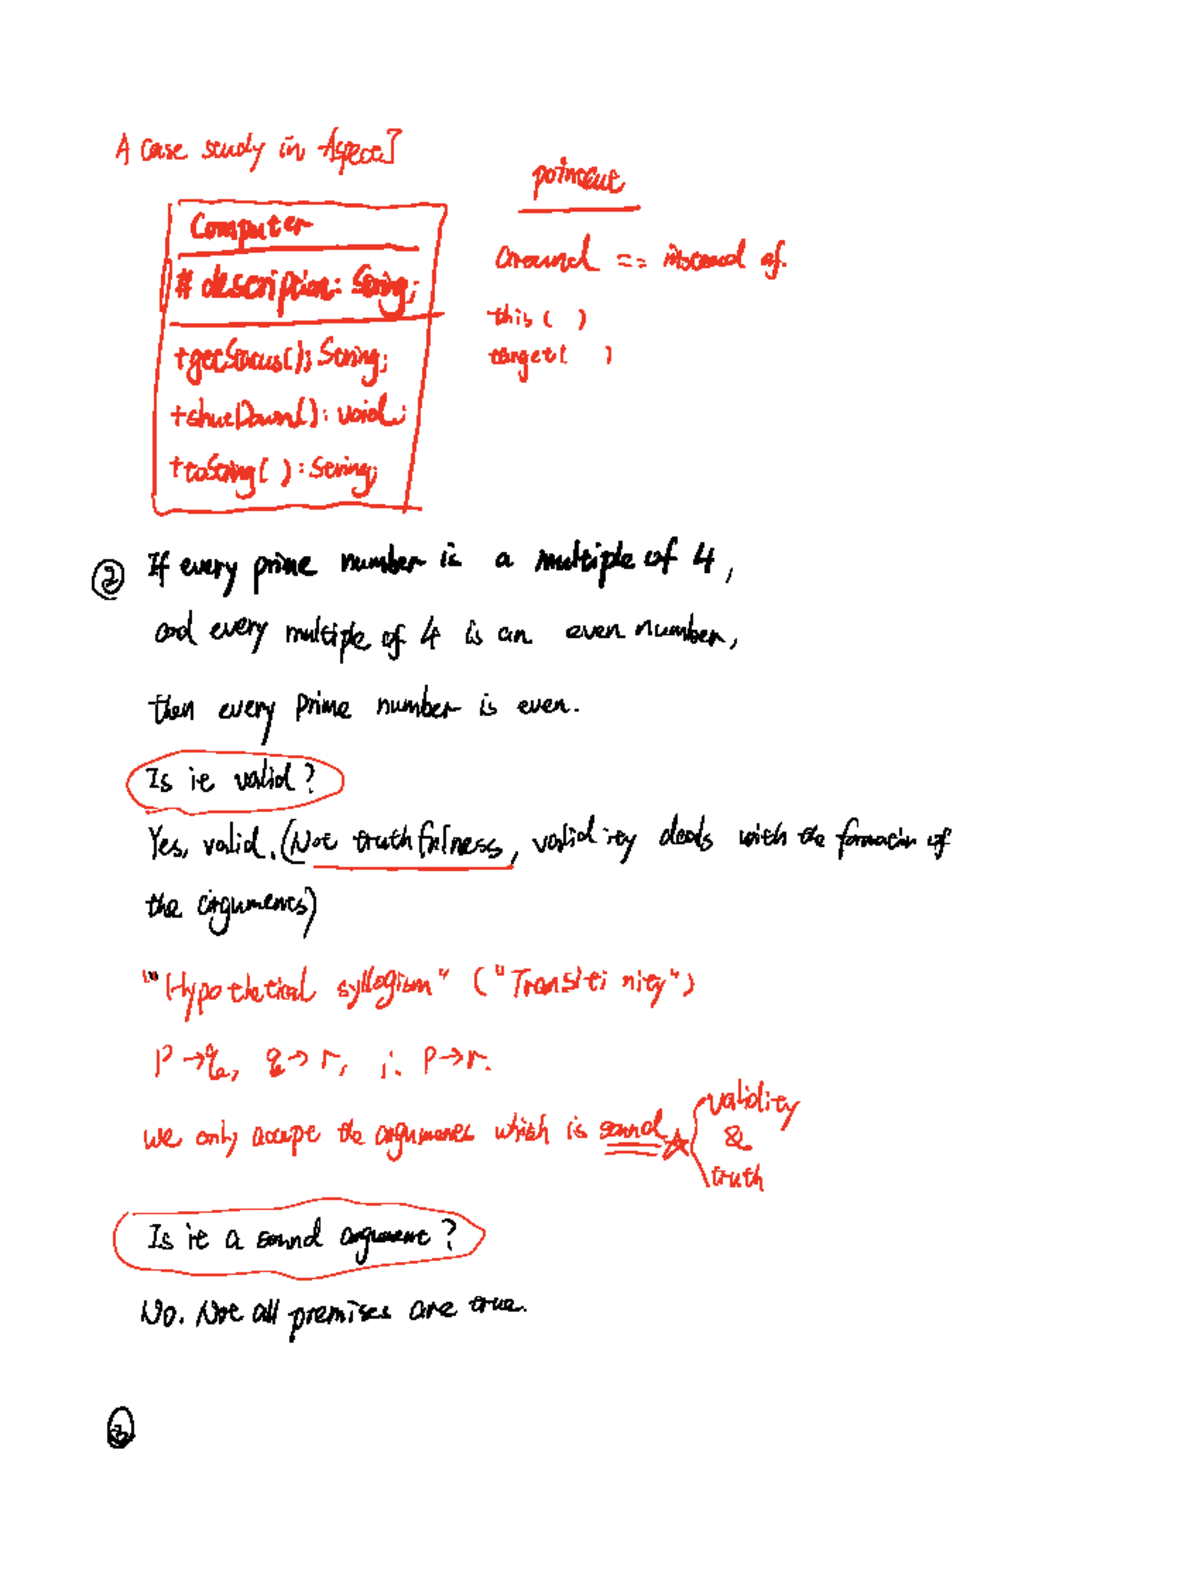 A case study in AspectJ
pointcut
Computer
# description: String;
+getStatus(): String;
+shutDown(): void;
+toString( ): String;
around == instead of.
this( )
target( )
② If every prime number is a multiple of 4,
and every multiple of 4 is an even number,
then every prime number is even.
Is it valid?
Yes, valid. (Not truthfulness, validity deals with the formation of
the arguments)
"Hypothetical syllogism" ("Transitivity")
P → q, q → r, ∴ P → r.
we only accept the arguments which is sound ☆ validity
&
truth
Is it a sound argument?
No. Not all premises are true.